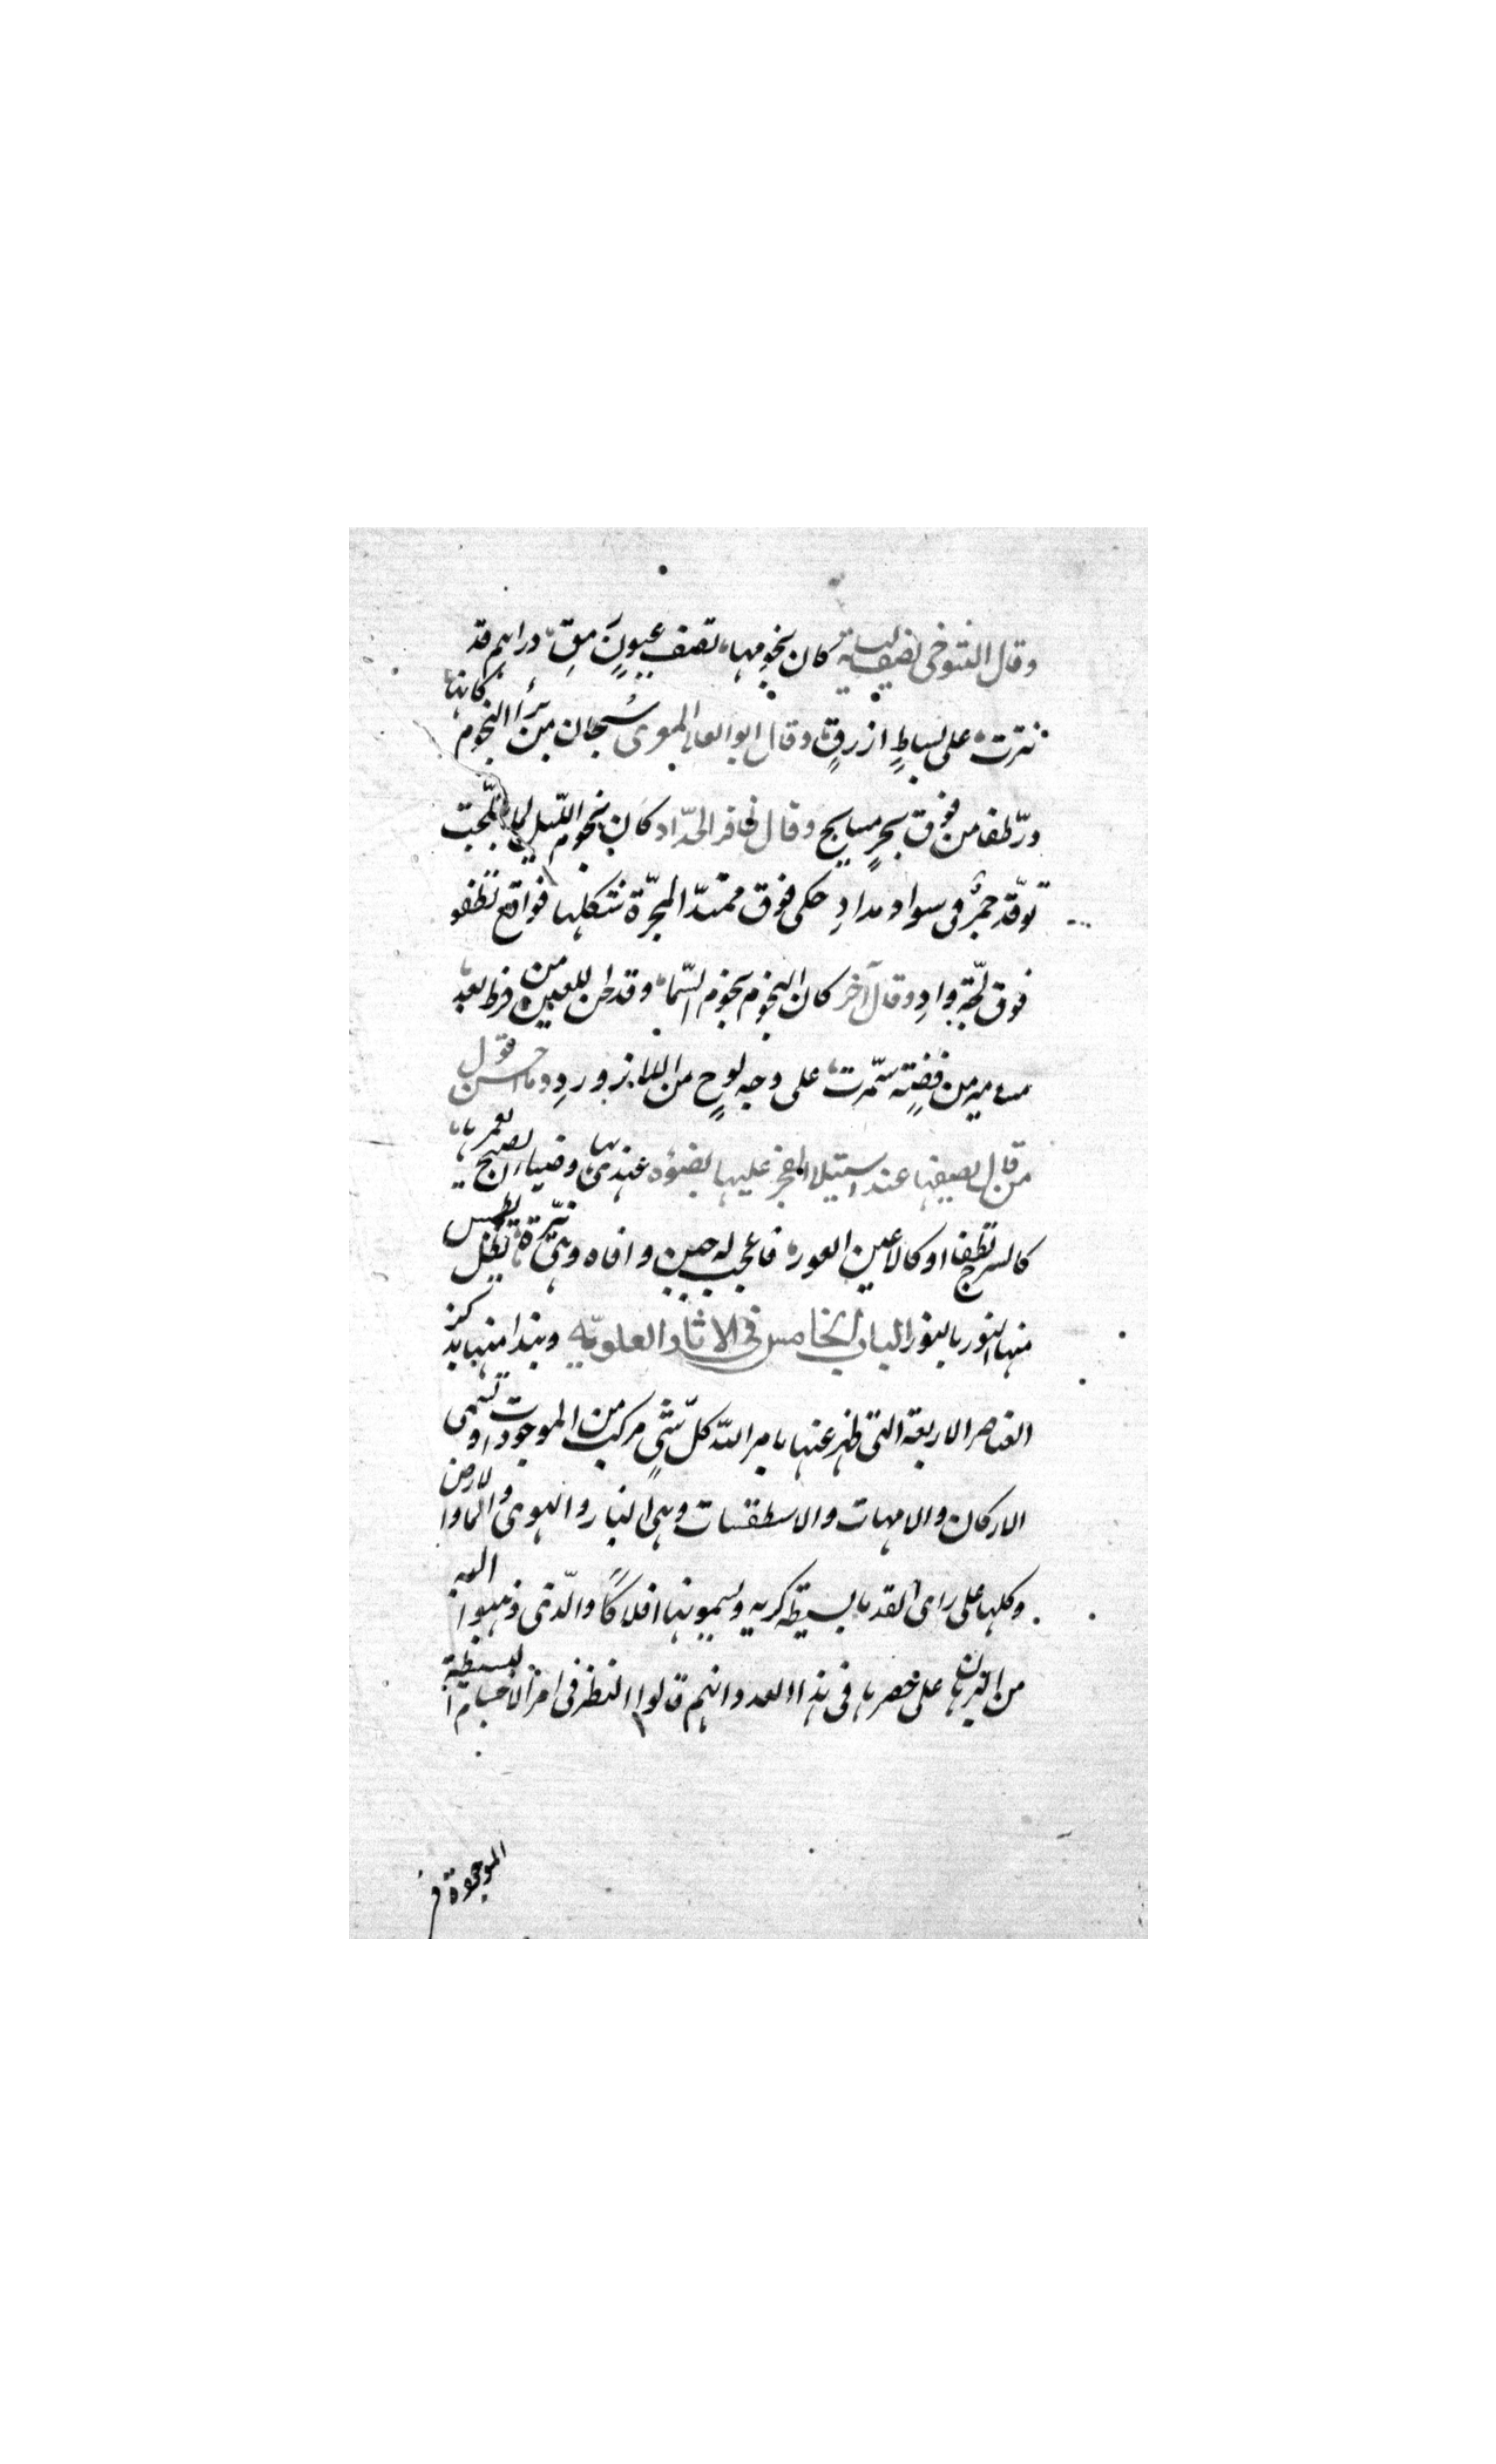 وقال التنوخى يصف ليلة كان نجومها تصف عيون مق دراهم قد
نثرت على بساط ازرق وقال ابو العالى المعرى سبحان من برأ النجوم كانها
در طفا من فوق بحر مسايج وقال ظافر الحداد كان نجوم الليل لما تبلجت
توقد جمر فى سواد مداد حكى فوق ممتد المجرة شكلها فواقع تطفو
فوق لجة واد وقال آخر كان النجوم نجوم السما وقد لحن للعين من فرط بعد
مسامير من فضة سمرت على وجه لوح من اللازورد وما احسن قول
من قال يصفها عند استيلا الفجر عليها بضوه عهدى بها وضياء الصبح يغمرها
كالسرج تطفا او كالاعين العور فاعجب له حين وافاه وهى نيرة تظل يطمس
منها النور بالنور الباب الخامس فى الاثار العلويه ونبدا منها بذكر
العناصر الاربعة التى ظهر عنها بامر الله كل شىء مركب من الموجودات وتسمى
الاركان والامهات والاسطقسات وهى النار والهوى والما والارض
وكلها على راى القدما بسيطة كريه ويسمونها افلاكا والذى ذهبوا اليه
من البرهان على حصرها فى هذا العدد انهم قالوا النظر فى امر الاجسام البسيطة
الموجودة فى